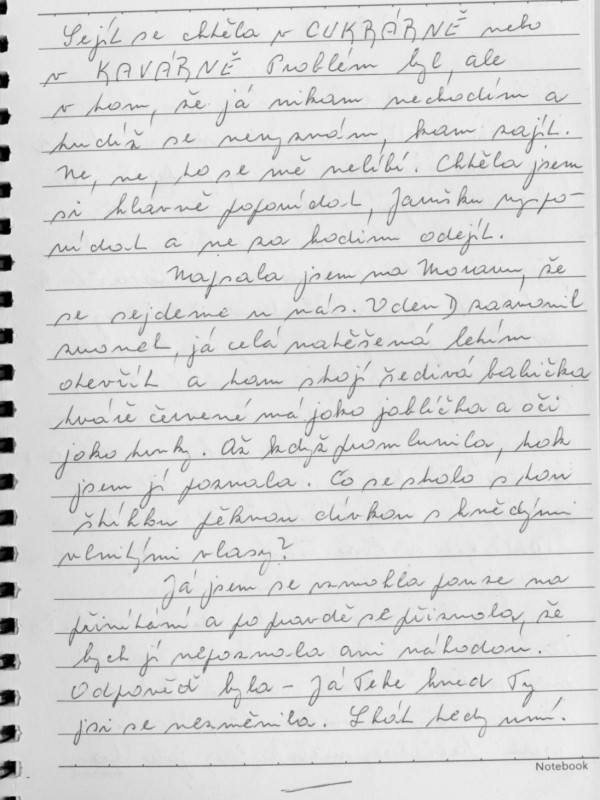 Sejít se chtěla v CUKRÁRNĚ nebo
v KAVÁRNĚ Problém byl, ale
v tom, že já nikam nechodím a
tudíž se nevyznám, kam zajít.
Ne, ne, to se mě nelíbí. Chtěla jsem
si hlavně popovídat, Jarušku vyspo-
vídat a ne za hodinu odejít.
Napsala jsem na Moravu, že
se sejdeme u nás. V den D zazvonil
zvonek, já celá natěšená letím
otevřít a tam stojí šedivá babička
tváře červené má jako jablíčka a oči
jako trnky. Až když promluvila, tak
jsem jí poznala. Co se stalo s tou
štíhlou pěknou dívkou s hnědými
vlnitými vlasy?
Já jsem se vzmohla pouze na
přivítání a po pravdě se přiznala, že
bych jí nepoznala ani náhodou.
Odpověď byla – Já Tebe hned Ty
jsi se nezměnila. Lhát tedy umí.
Notebook